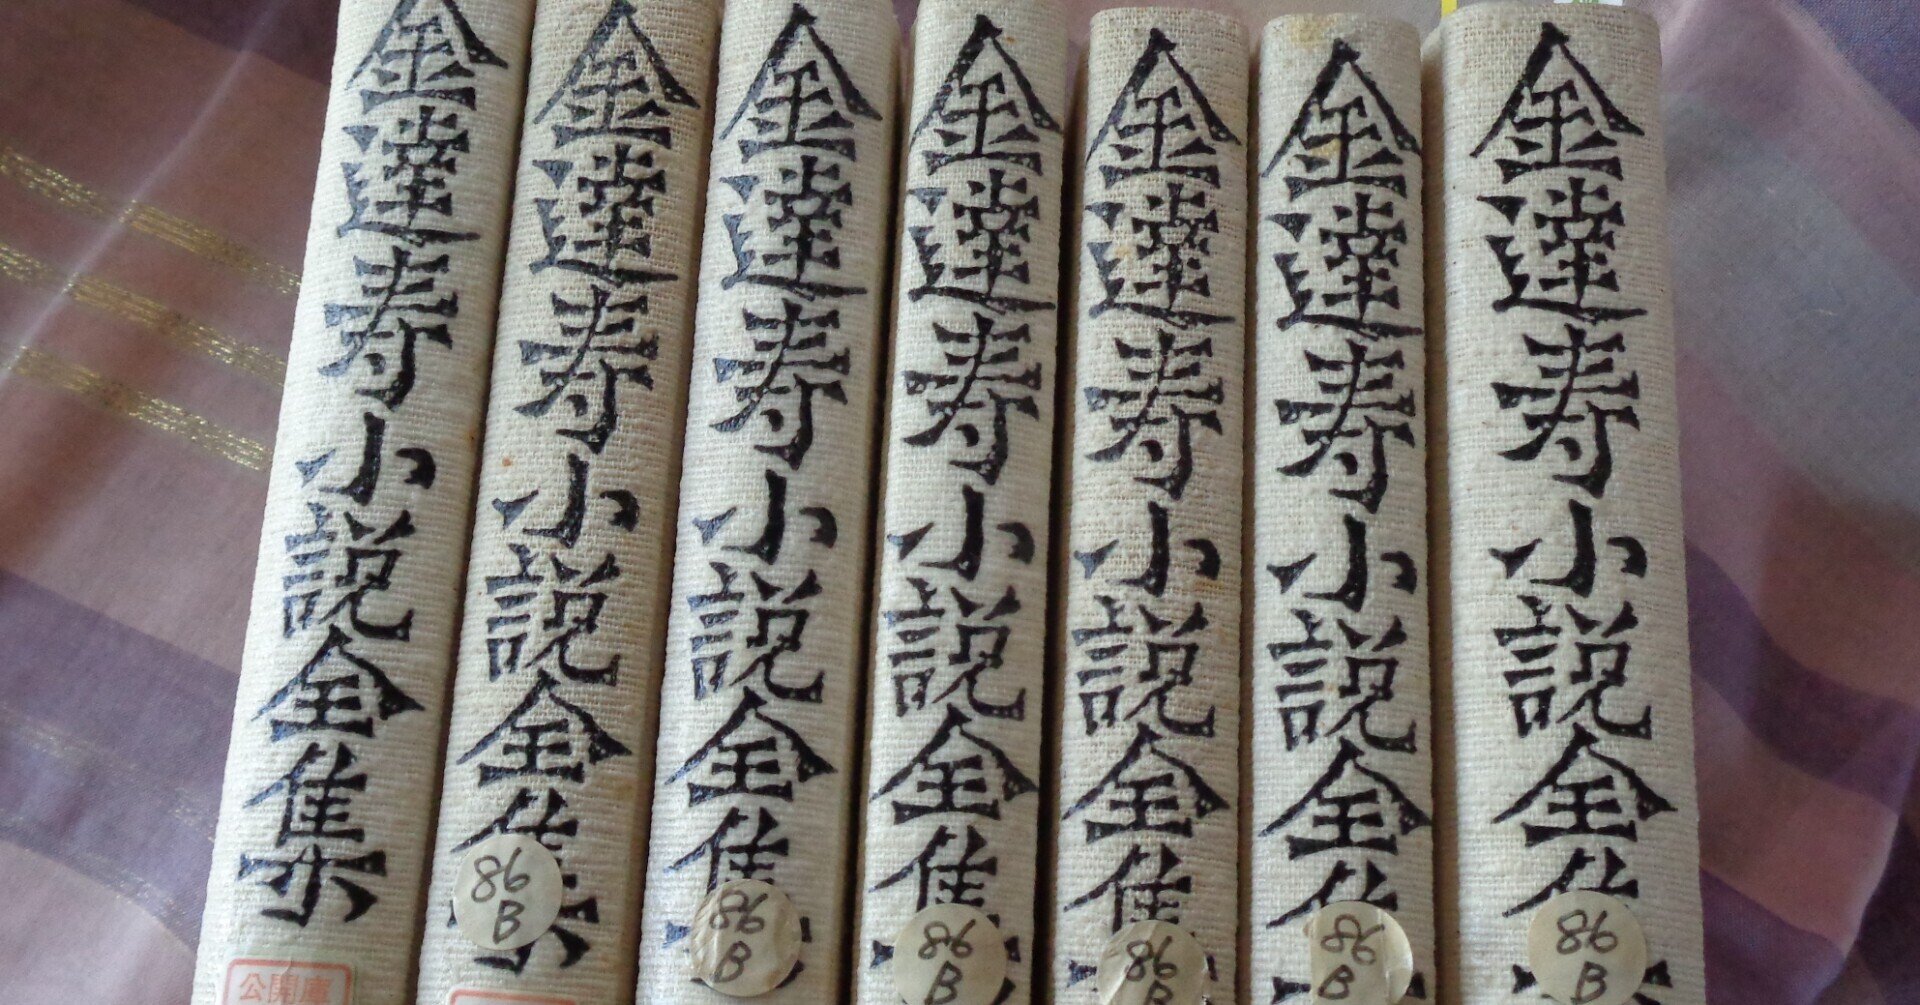 金達寿小説全集
公開庫
金達寿小説全集
86
B
金達寿小説全集
86
B
金達寿小説全集
86
B
金達寿小説全集
86
B
金達寿小説全集
86
B
金達寿小説全集
86
B